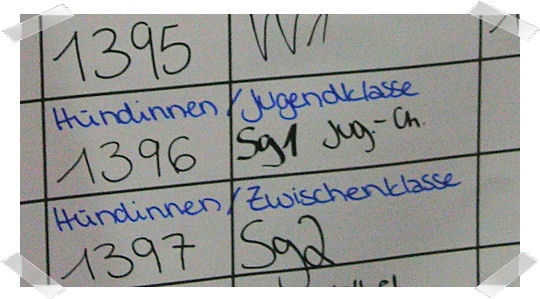 1395
Hündinnen / Jugendklasse
1396 Sg1 Jug.-Ch.
Hündinnen / Zwischenklasse
1397 Sg2